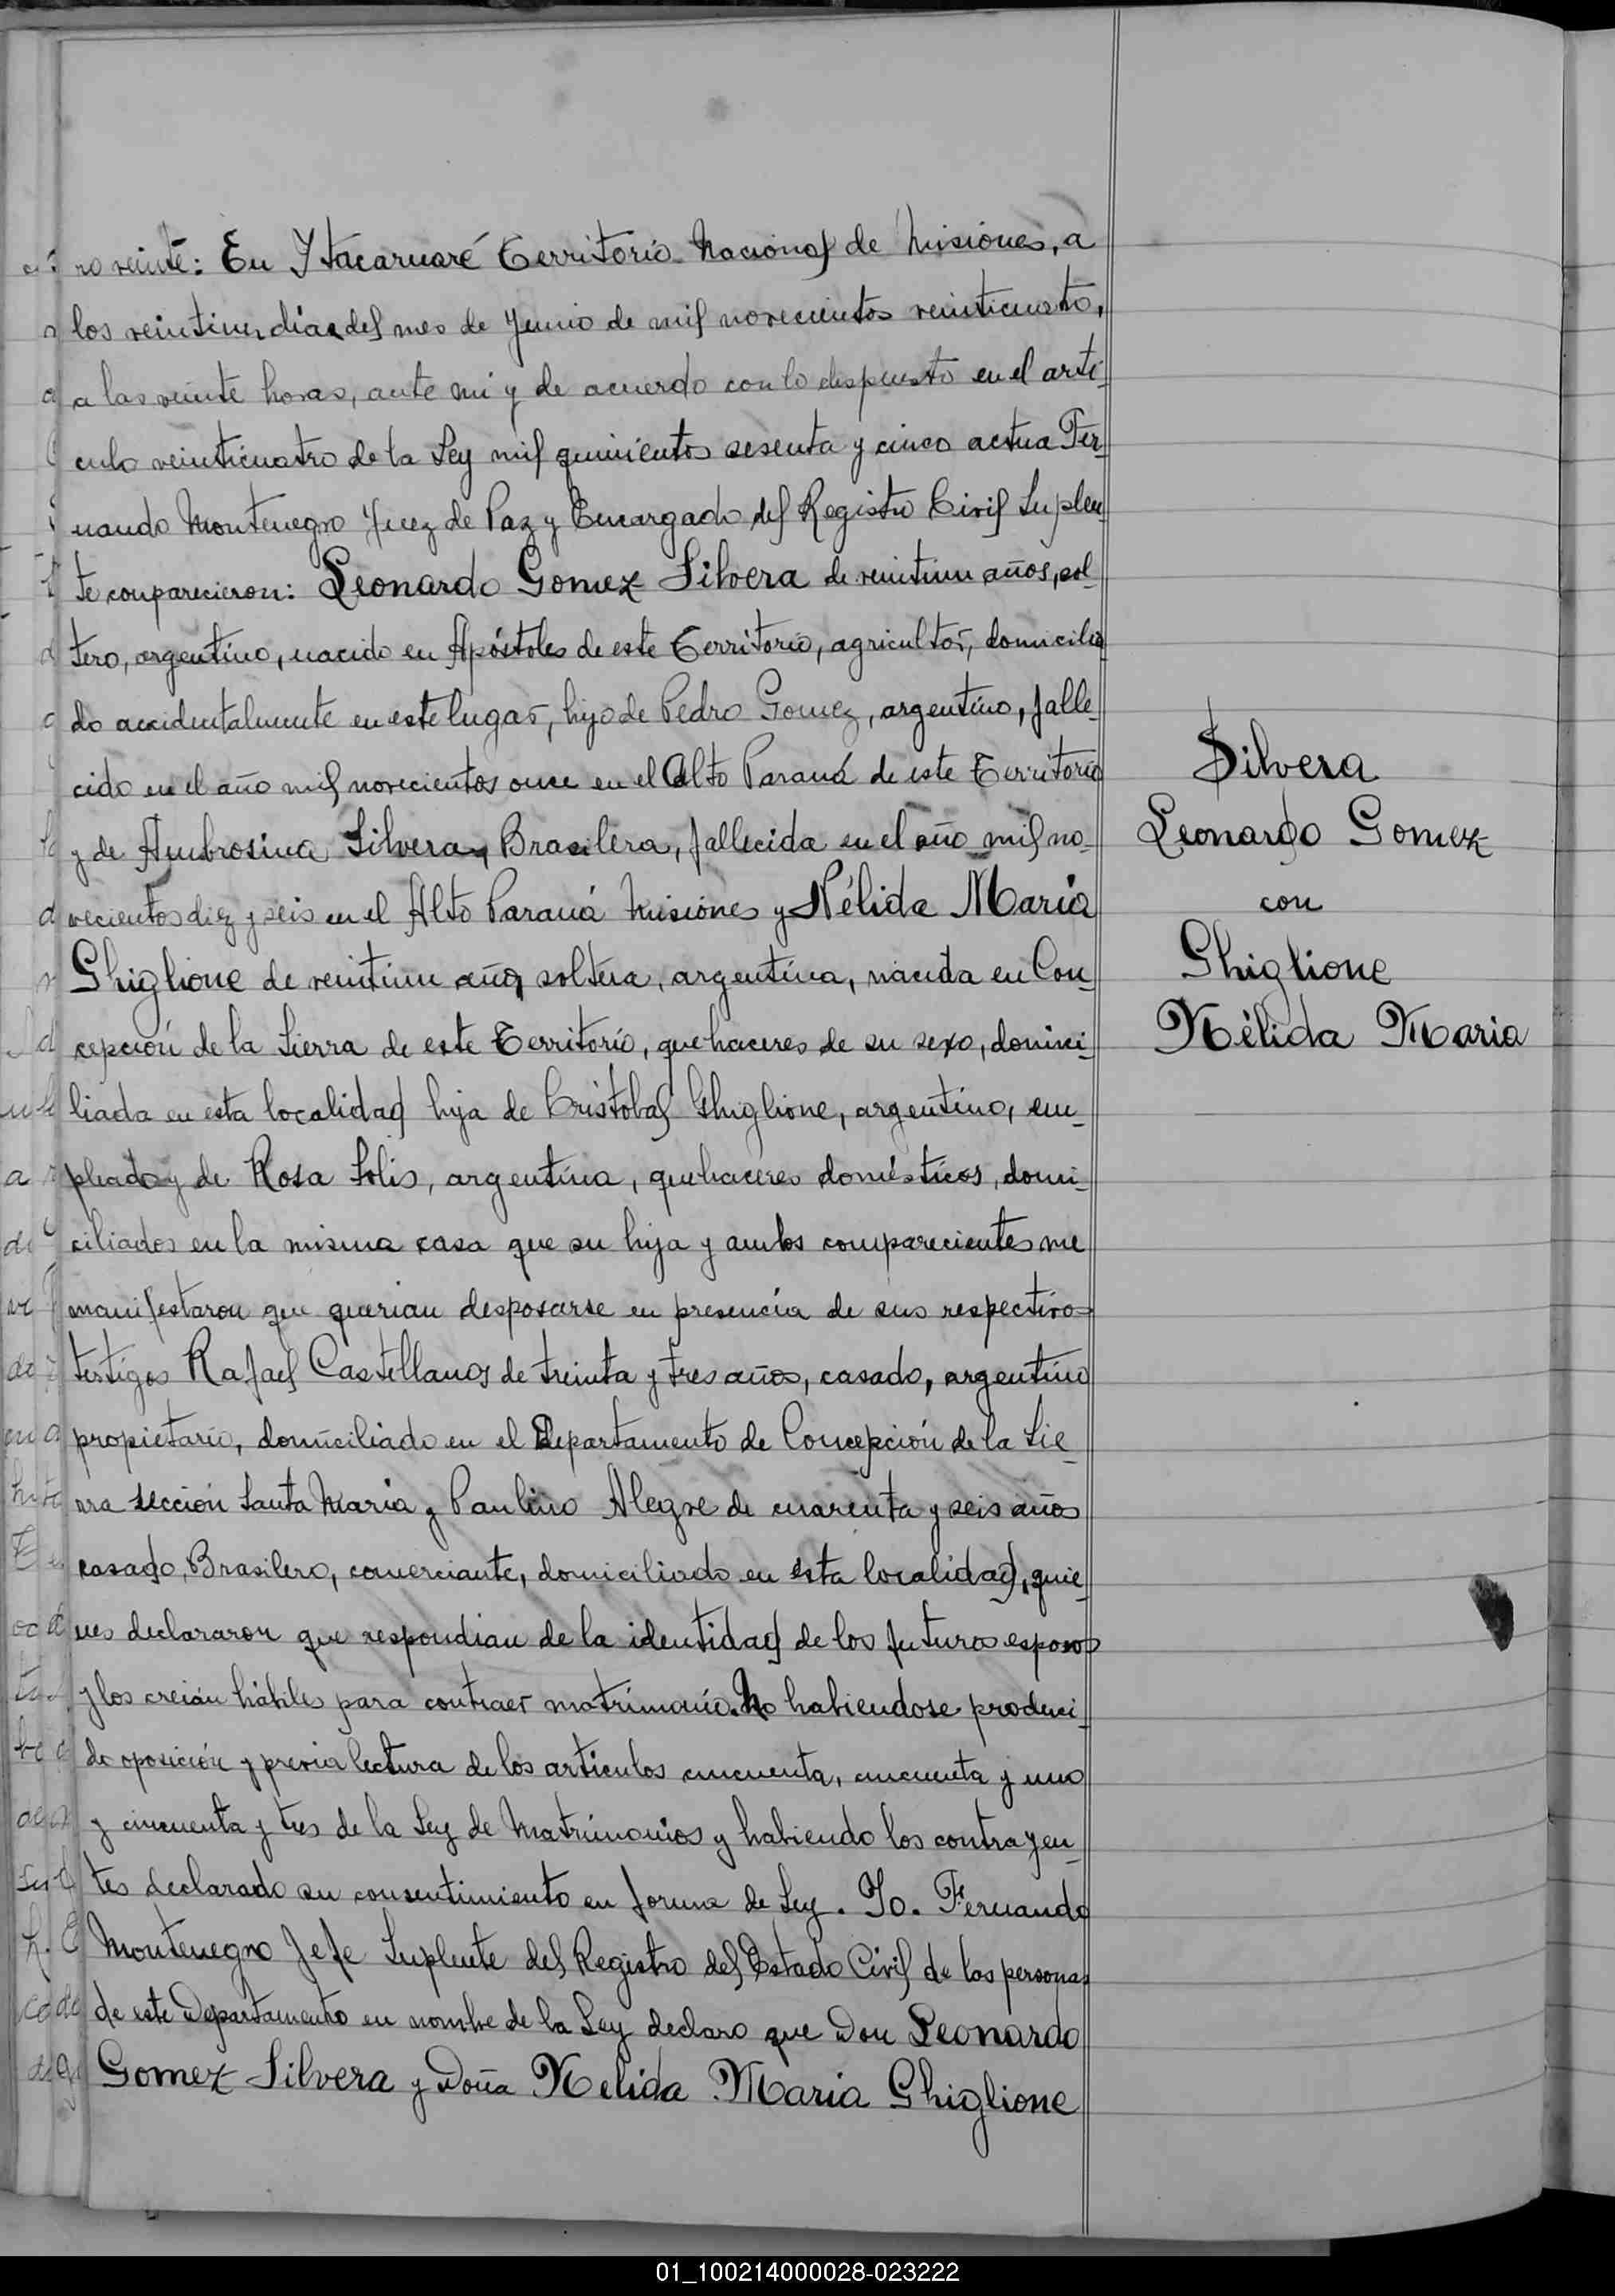 ro veinte: En Ytacaruaré Territorio Nacional de Misiones, a
los veintiun dias del mes de Junio de mil novecientos veinticuatro,
a las veinte horas, ante mi y de acuerdo con lo dispuesto en el arti-
culo veinticuatro de la Ley mil quinientos sesenta y cinco actua Fer-
nando Montenegro Juez de Paz y Encargado del Registro Civil Suplen-
te comparecieron: Leonardo Gomez Silvera de veintiun años, sol-
tero, argentino, nacido en Apóstoles de este Territorio, agricultor, domicilia-
do accidentalmente en este lugar, hijo de Pedro Gomez, argentino, falle-
cido en el año mil novecientos once en el Alto Paraná de este Territorio
y de Ambrosina Silvera, Brasilera, fallecida en el año mil no-
vecientos diez y seis en el Alto Paraná Misiones y Nélida Maria
Ghiglione de veintiun años, soltera, argentina, nacida en Con-
cepción de la Sierra de este Territorio, quehaceres de su sexo, domici-
liada en esta localidad hija de Cristobal Ghiglione, argentino, em-
pleado y de Rosa Solis, argentina, quehaceres domésticos, domi-
ciliados en la misma casa que su hija y ambos comparecientes me
manifestaron que querian desposarse en presencia de sus respectivos
testigos Rafael Castellanos de treinta y tres años, casado, argentino
propietario, domiciliado en el Departamento de Concepción de la Sie-
rra sección Santa Maria y Paulino Alegre de cuarenta y seis años
casado, Brasilero, comerciante, domiciliado en esta localidad, quie-
nes declararon que respondian de la identidad de los futuros esposos
y los creían hábiles para contraer matrimonio. No habiendose produci-
do oposición y previa lectura de los articulos cincuenta, cincuenta y uno
y cincuenta y tres de la Ley de Matrimonios y habiendo los contrayen-
tes declarado su consentimiento en forma de Ley. Yo. Fernando
Montenegro Jefe Suplente del Registro del Estado Civil de las personas
de este Departamento en nombre de la Ley declaro que Don Leonardo
Gomez Silvera y Doña Nelida Maria Ghiglione
Silvera
Leonardo Gomez
con
Ghiglione
Nélida Maria
01_100214000028-023222